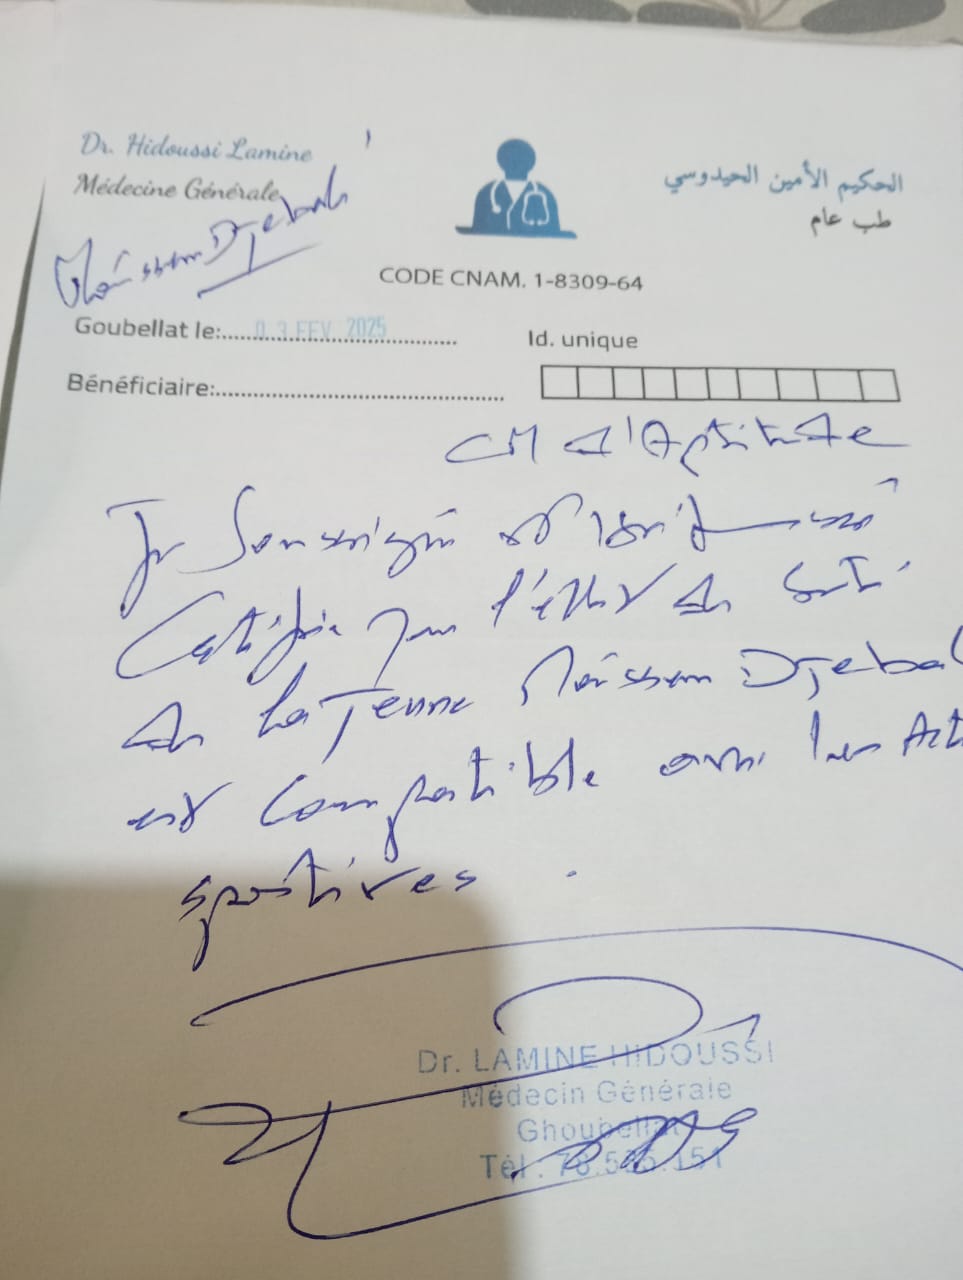 Dr. Hidoussi Lamine
Médecine Générale
الحكيم الأمين الحيدوسي
طب عام
Maïssem Djebali
CODE CNAM. 1-8309-64
Goubellat le:
0 3 FEV. 2025
Id. unique
Bénéficiaire:
CM d'Aptitude
Je Soussigné
Certifie que l'état de Santé
de la Jeune Maïssem Djebal
est compatible avec les Act
sportives.
Dr. LAMINE HIDOUSSI
Médecin Générale
Ghoubellat
Tél : 78.